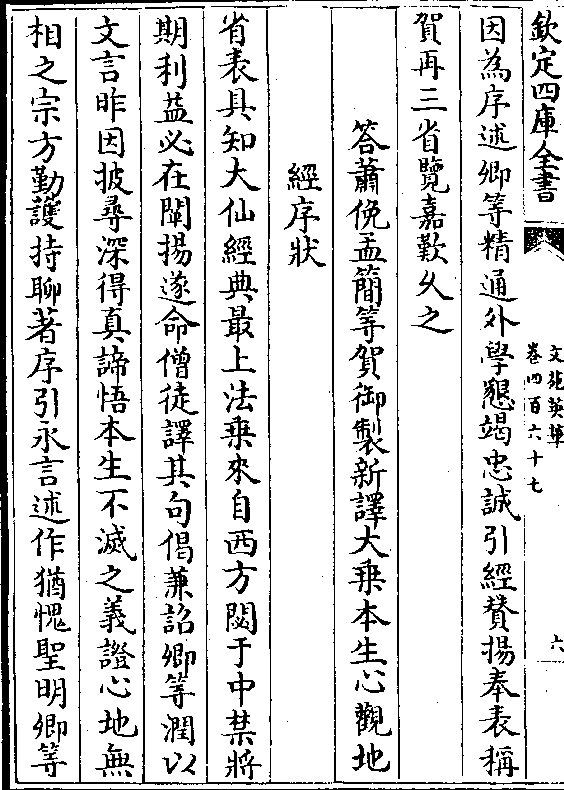 欽定四庫全書
文苑英華
卷四百六十七
六
因為序述卿等精通外學懇竭忠誠引經贊揚奉表稱
賀再三省覽嘉歎久之
答蕭俛孟簡等賀御製新譯大乗本生心觀地
經序狀
省表具知大仙經典最上法乗來自西方閟于中禁將
期利益必在闡揚遂命僧徒譯其句偈兼詔卿等潤以
文言昨因披尋深得真諦悟本生不滅之義證心地無
相之宗方勤護持聊著序引永言述作猶愧聖明卿等